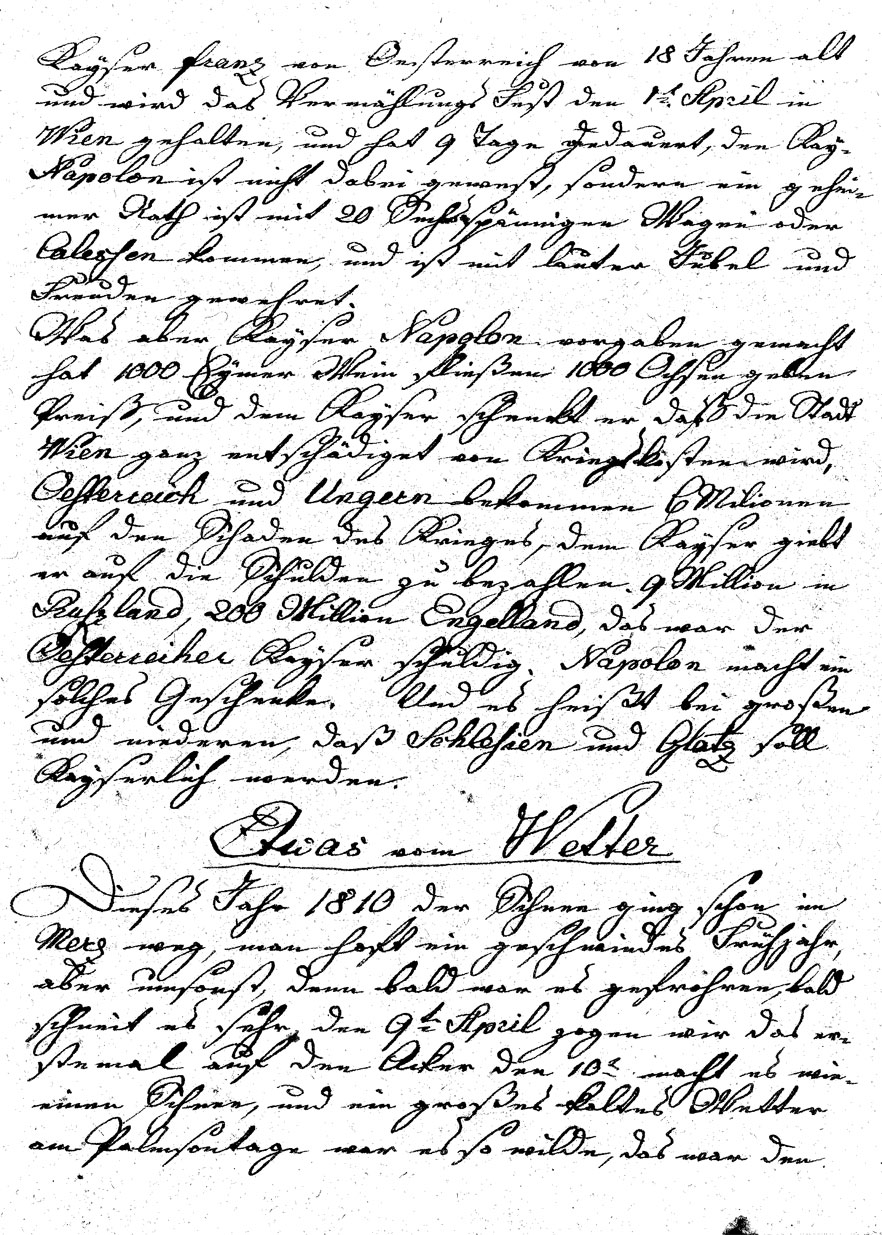 Kayser Franz von Oesterreich von 18 Jahren alt
und wird das Vermählungs Fest den 1st. April in
Wien gehalten, und hat 9 Tage gedauert, der Kay-
Napolon ist nicht dabei gewest, sondern ein gehei-
mer Rath ist mit 20 Sechsspännigen Wagen oder
Caleshen kommen, und ist mit lauter Jubel und
Freuden gewehret.
Was aber Kayser Napolon vorgaben gemacht
hat 1000 Eymer Wein fließen 1000 Ochsen geben
Preiß, und dem Kayser schenkt er daß die Stadt
Wien ganz entschädiget von Kriegskosten wird,
Oesterreich und Ungern bekommen 6 Milionen
auf den Schaden des Krieges, dem Kayser giebt
er auf die Schulden zu bezahlen. 9 Million in
Rußland, 200 Million Engelland, das war der
Oesterreicher Kayser schuldig. Napolon macht ein
solches Geschenke. Und es heißt bei großen
und niederen, daß Schlesien und Glatz soll
Kayserlich werden.
Etwas vom Wetter
Dieses Jahr 1810 der Schnee ging schon im
Merz weg, man hoft ein geschwindes Frühjahr,
aber umsonst, denn bald war es gefrohren, bald
schneit es sehr, den 9t. April zogen wir das er-
stemal auf den Acker den 10t. macht es wie-
einen Schnee, und ein großes kaltes Wetter
am Palmsontage war es so wilde, das war den